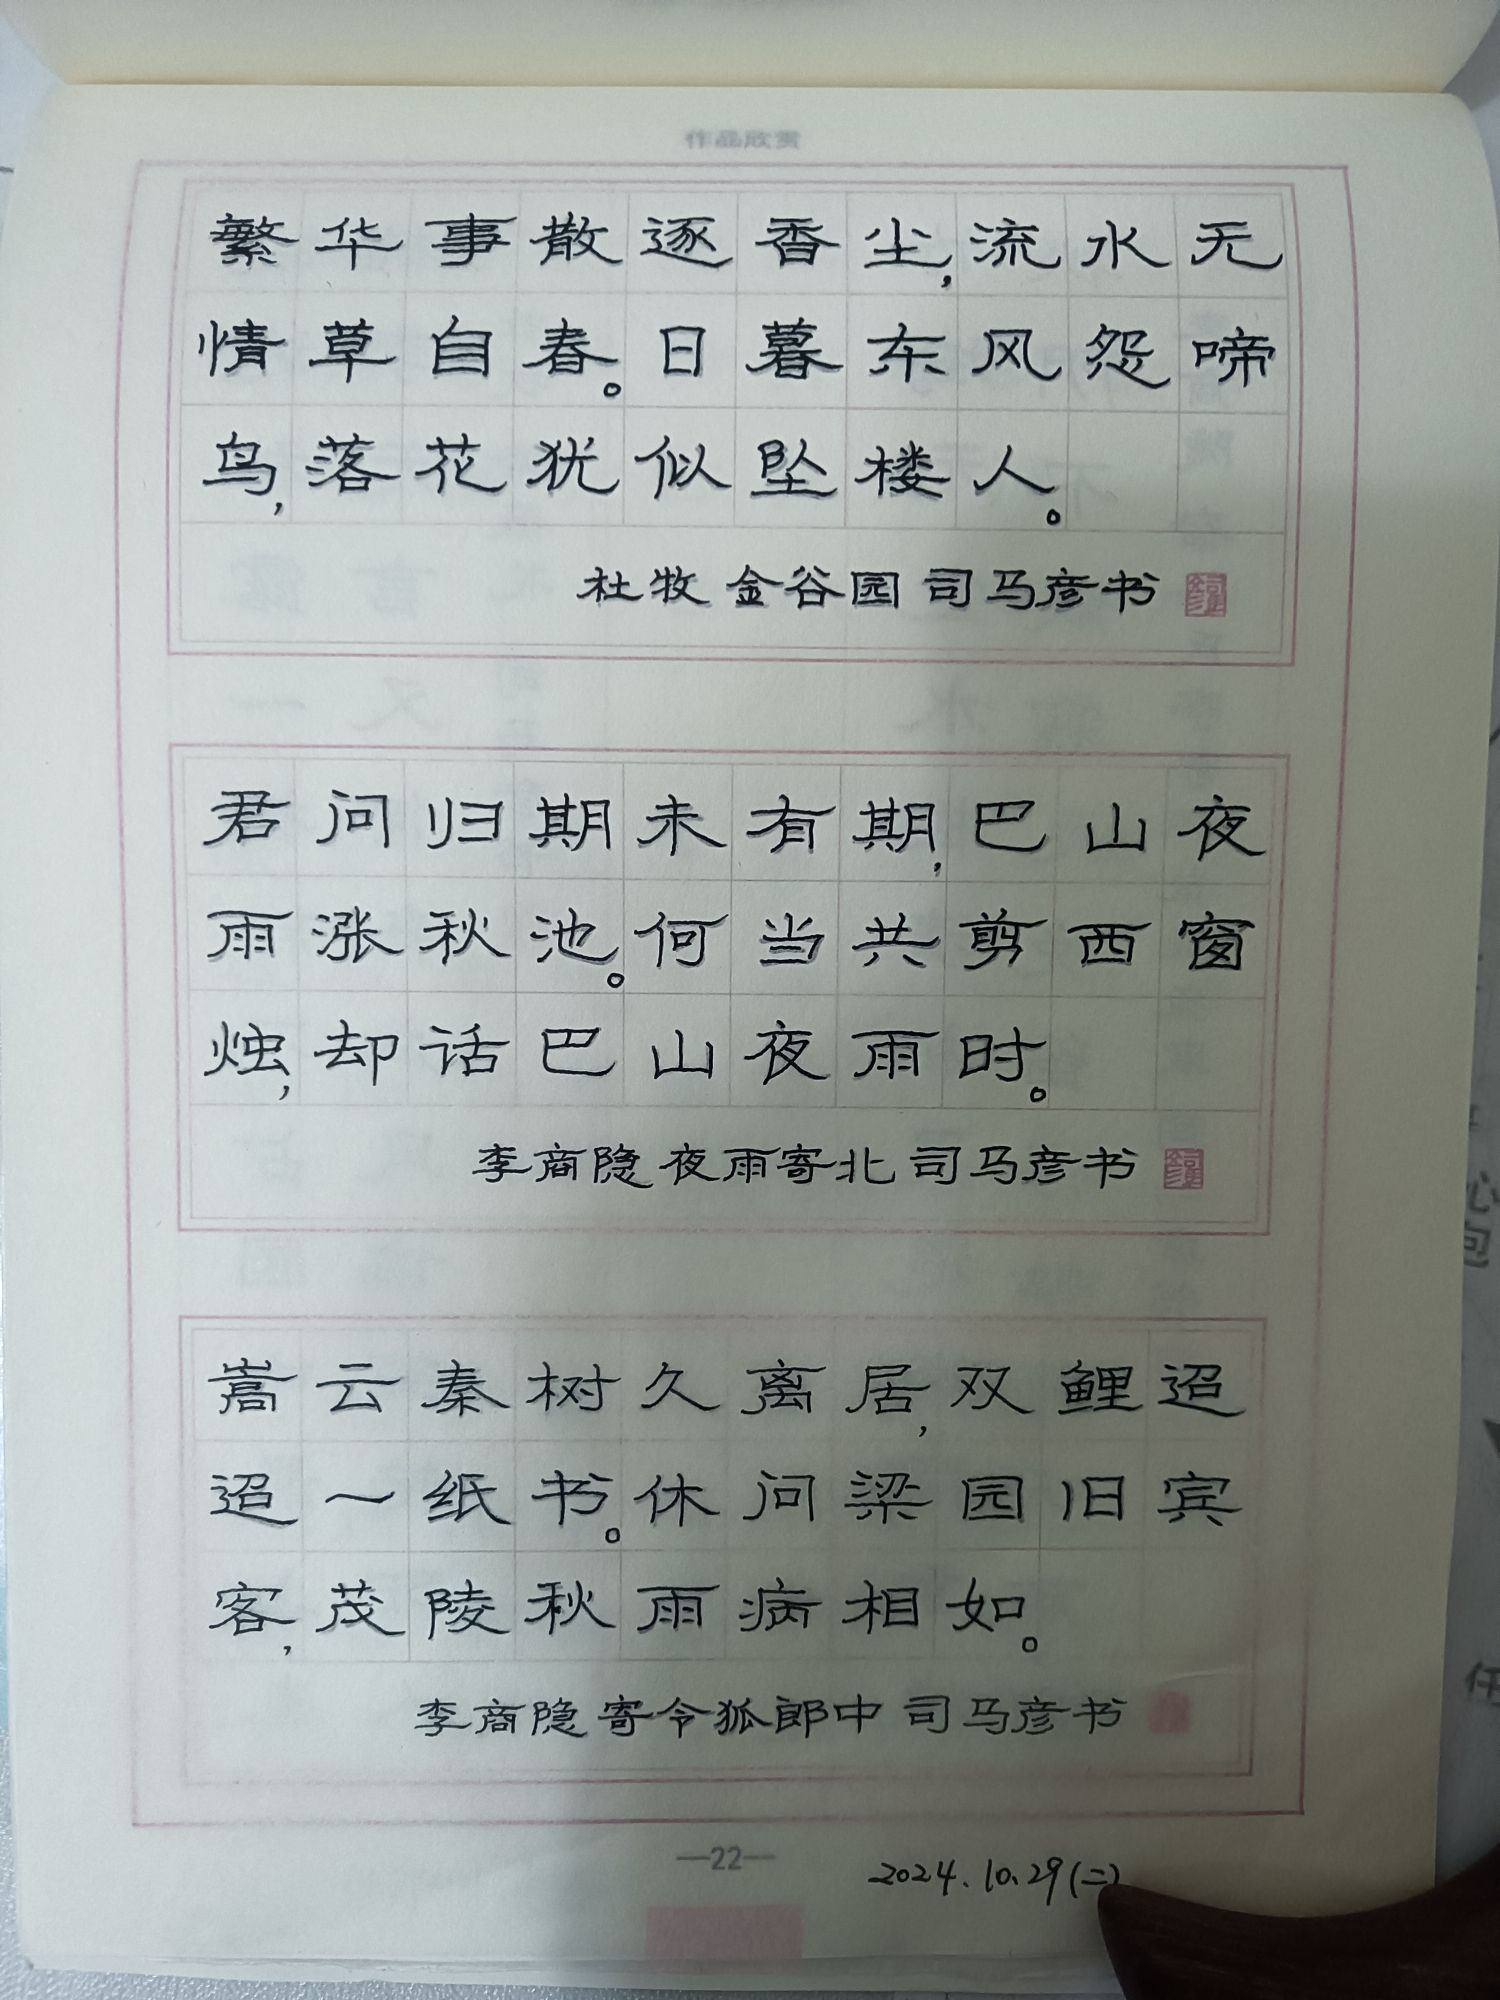 作品欣赏
繁华事散逐香尘，流水无
情草自春。日暮东风怨啼
鸟，落花犹似坠楼人。
杜牧 金谷园 司马彦书
君问归期未有期，巴山夜
雨涨秋池。何当共剪西窗
烛，却话巴山夜雨时。
李商隐 夜雨寄北 司马彦书
嵩云秦树久离居，双鲤迢
迢一纸书。休问梁园旧宾
客，茂陵秋雨病相如。
李商隐 寄令狐郎中 司马彦书
—22—
2024.10.29(二)
心
包
任